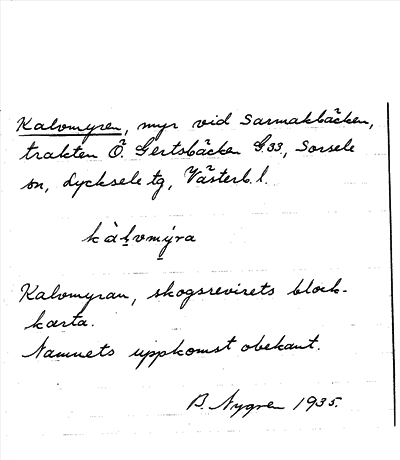 Kalvmyren, myr vid Sarmakbäcken,
trakten Ö. Gertsbäcken G.33, Sorsele
sn, Lycksele tg, Västerb. l.
kàḷvmýra
Kalvmyran, skogsrevirets block-
karta.
Namnets uppkomst obekant.
B. Nygren 1935.